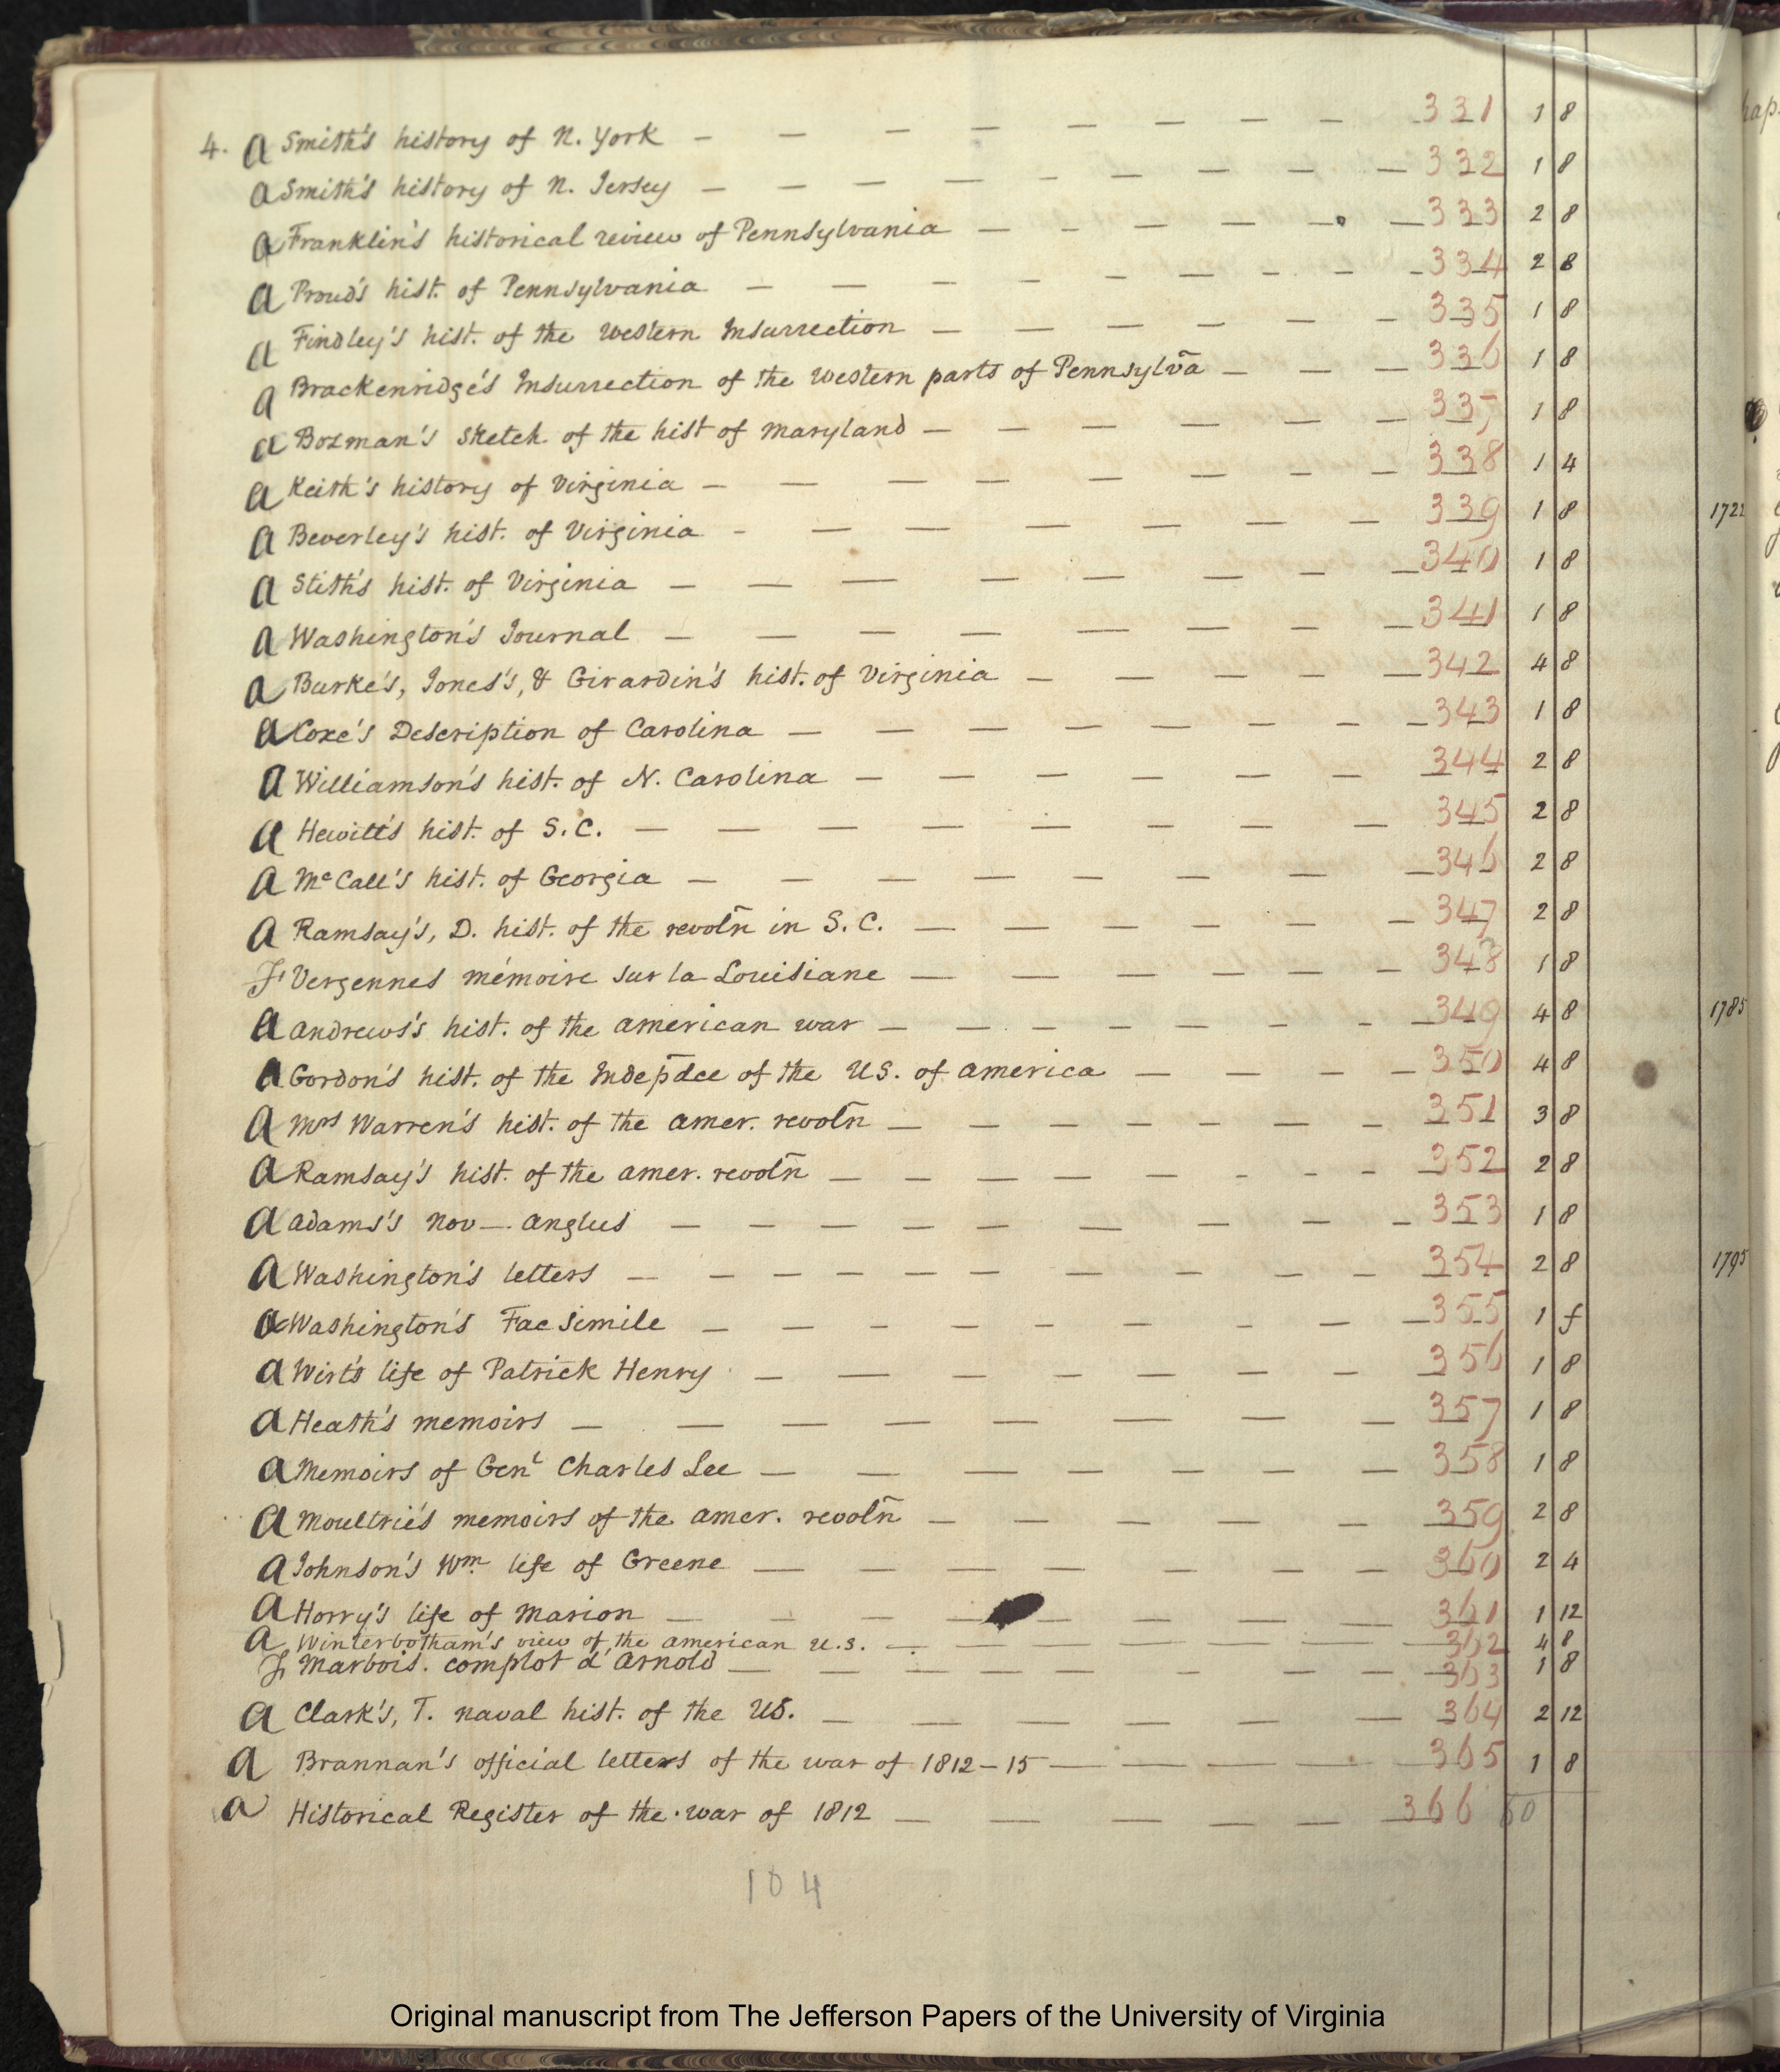 4. a Smith's history of N. York - - - - - - - - - 331 1 8
a Smith's history of N. Jersey - - - - - - - - - 332 1 8
a Franklin's historical review of Pennsylvania - - - - - - 333 2 8
a Proud's hist. of Pennsylvania - - - - - - - - - 334 2 8
a Findley's hist. of the Western Insurrection - - - - - - 335 1 8
a Brackenridge's Insurrection of the Western parts of Pennsylvã - - - 336 1 8
a Bozman's sketch of the hist of Maryland - - - - - - 337 1 8
a Keith's history of Virginia - - - - - - - - 338 1 4
a Beverley's hist. of Virginia - - - - - - - - 339 1 8 1722
a Stith's hist. of Virginia - - - - - - - - - 340 1 8
a Washington's Journal - - - - - - - - - 341 1 8
a Burke's, Jones's, & Girardin's hist. of Virginia - - - - - 342 4 8
a Coxe's Description of Carolina - - - - - - - - 343 1 8
a Williamson's hist. of N. Carolina - - - - - - - 344 2 8
a Hewitt's hist. of S.C. - - - - - - - - 345 2 8
a McCall's hist. of Georgia - - - - - - - - - 346 2 8
a Ramsay's, D. hist. of the revolñ in S.C. - - - - - - 347 2 8
F Vergennes mémoire sur la Louisiane - - - - - - 348 1 8
a Andrews's hist. of the American war - - - - - - - - 349 4 8 1785
a Gordon's hist. of the Indep̃dce of the US. of America - - - - 350 4 8
a Mrs Warren's hist. of the Amer. revolñ - - - - - - - 351 3 8
a Ramsay's hist. of the Amer. revolñ - - - - - - - - 352 2 8
a Adams's Nov-. Anglus - - - - - - - - - 353 1 8
a Washington's letters - - - - - - - - - 354 2 8 1795
a Washington's Fac simile - - - - - - - - - 355 1 f
a Wirt's life of Patrick Henry - - - - - - - - 356 1 8
a Heath's memoirs - - - - - - - - 357 1 8
a Memoirs of Genl Charles Lee - - - - - - - 358 1 8
a Moultrie's memoirs of the Amer. revolñ - - - - - 359 2 8
a Johnson's Wm. life of Greene - - - - - - - - 360 2 4
a Horry's life of Marion - - - - - - - - 361 1 12
a Winterbotham's view of the American U.S. - - - - - - 362 4 8
F Marbois. complot d'Arnold - - - - - - - - 363 1 8
a Clark's, T. naval hist. of the US. - - - - - - 364 2 12
a Brannan's official letters of the war of 1812-15 - - - - - 365 1 8
a Historical Register of the war of 1812 - - - - - 366 60
104
Original manuscript from The Jefferson Papers of the University of Virginia